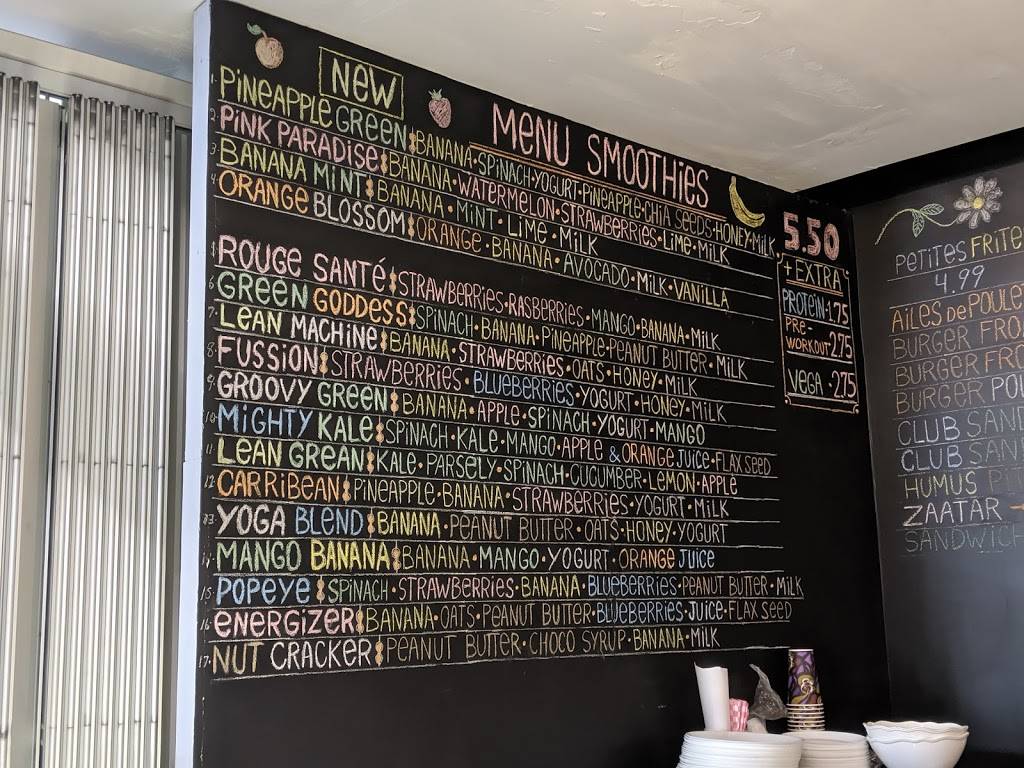 NEW
MENU SMOOTHiES
1. PiNEAPPLE GREEN BANANA·SPiNACH·YOGURT·PiNEAPPLE·CHiA SEEDS·HONEY·MiLK
2. PiNK PARADiSE BANANA·WATERMELON·STRAWBERRiES·LiME·MiLK
3. BANANA MiNT BANANA·MiNT·LiME·MiLK
4. ORANGE BLOSSOM ORANGE·BANANA·AVOCADO·MiLK·VANiLLA
ROUGE SANTÉ STRAWBERRiES·RASBERRiES·MANGO·BANANA·MiLK
6. GREEN GODDESS SPiNACH·BANANA·PiNEAPPLE·PEANUT BUTTER·MiLK
7. LEAN MACHiNE BANANA·STRAWBERRiES·OATS·HONEY·MiLK
8. FUSSiON STRAWBERRiES·BLUEBERRiES·YOGURT·HONEY·MiLK
9. GROOVY GREEN BANANA·APPLE·SPiNACH·YOGURT·MANGO
10. MiGHTY KALE SPiNACH·KALE·MANGO·APPLE & ORANGE JUiCE·FLAX SEED
11. LEAN GREAN KALE·PARSELY·SPiNACH·CUCUMBER·LEMON·APPLE
12. CARRiBEAN PiNEAPPLE·BANANA·STRAWBERRiES·YOGURT·MiLK
13. YOGA BLEND BANANA·PEANUT BUTTER·OATS·HONEY·YOGURT
14. MANGO BANANA BANANA·MANGO·YOGURT·ORANGE JUiCE
15. POPEYE SPiNACH·STRAWBERRiES·BANANA·BLUEBERRiES·PEANUT BUTTER·MiLK
16. ENERGiZER BANANA·OATS·PEANUT BUTTER·BLUEBERRiES·JUiCE·FLAX SEED
17. NUT CRACKER PEANUT BUTTER·CHOCO SYRUP·BANANA·MiLK
5.50
+EXTRA
PROTEiN·1.75
PRE-
WORKOUT·2.75
VEGA·2.75
PETiTES FRiTE
4.99
AiLES de POULE
BURGER FRO
BURGER FRO
BURGER POU
CLUB SAND
CLUB SAN
HUMUS PiT
ZAATAR
SANDWiCH